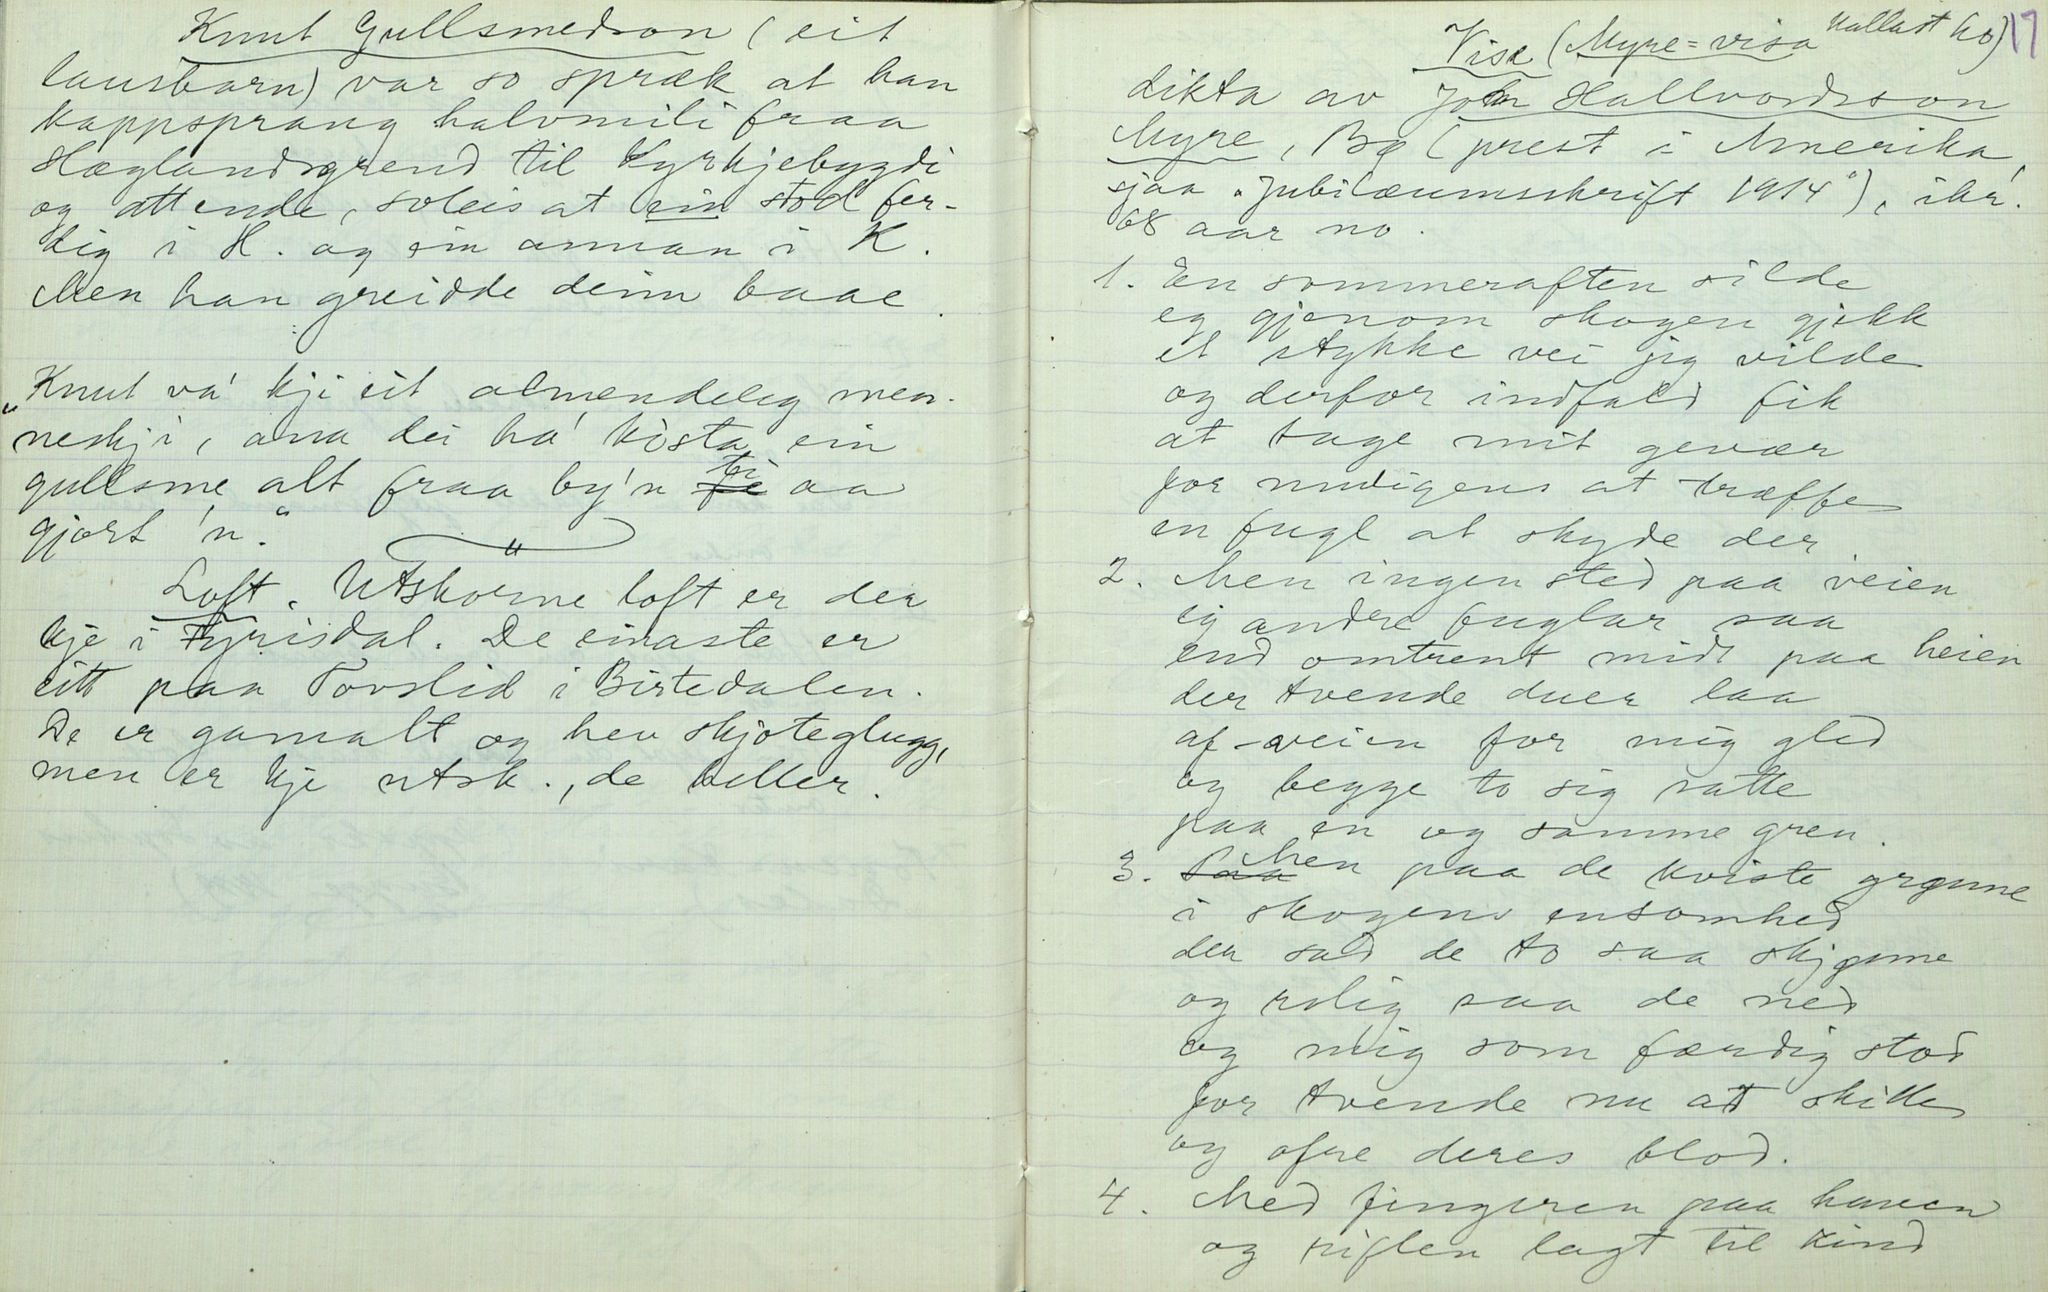 Knut Gullsmedson (eit
lausbarn) var so spræk at han
kappsprang halvmili fraa
Hæglandsgrend til Kyrkjebygdi
og attende, soleis at ein stod fer-
dig i H. og ein annan i K.
Men han greidde deim baae.
"Knut va' kji eit almendeleg men-
neskji, ana dei ha' kosta ein
gullsme alt fraa by'n ti aa
gjort 'n."
Loft. Utskorne loft er der
kje i Fyrisdal. De einaste er
eitt paa Tovslid i Birtedalen.
De er gamalt og hev skjoteglugg,
men er kje utsk., de heller.
17
Visa (Myre=visa kallast ho)
dikta av John Hallvordsson
Myre, Bø (prest i Amerika,
sjaa "Jubilæumsskrift 1914"), ikr.
68 aar no.
1. En sommeraften silde
eg gjenom skogen gjekk
et stykke vei jeg vilde
og derfor indfald fik
at tage mit gevær
for muligens at træffe
en fugl at skyde der.
2. Men ingen sted paa veien
eg andre fuglar saa
end omtrent midt paa heien
der tvende duer laa
af veien for mig gled
og begge to sig satte
paa en og samme gren.
3. Men paa de kviste grønne
i skogens ensomhed
der sad de to saa skjønne
og rolig saa de ned
og mig som færdig stod
for tvende nu at skille
og ofre deres blod.
4. Med fingeren paa hanen
og riflen lagt til kind